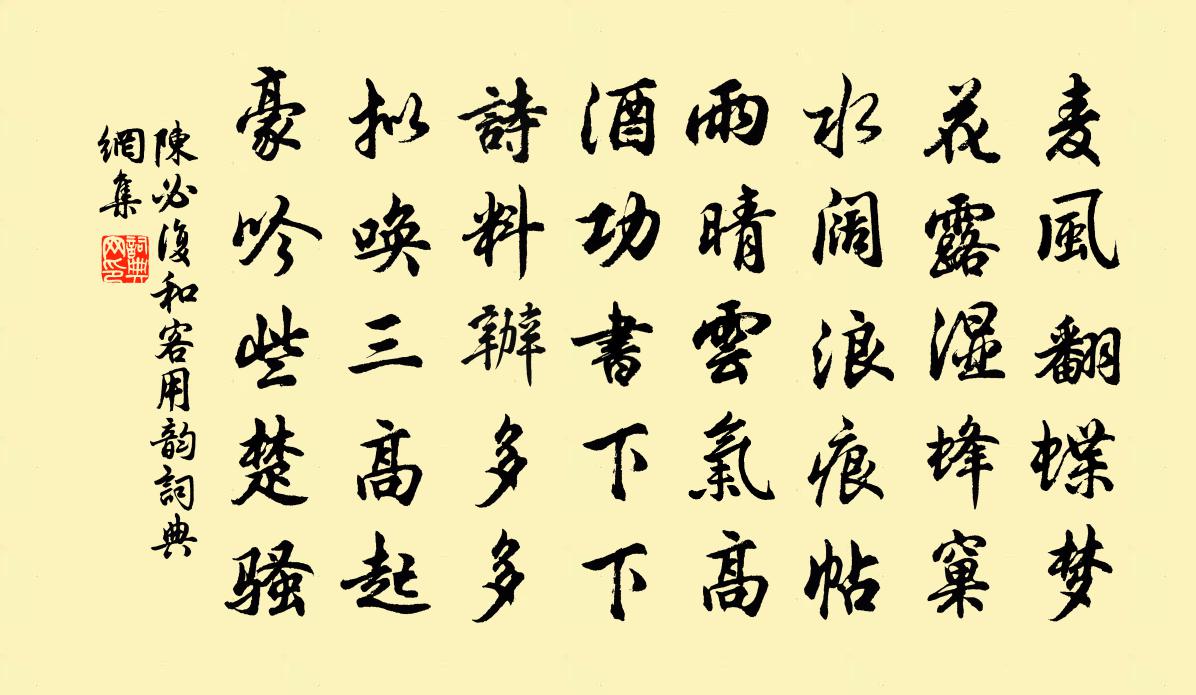 麦風翻蝶梦
花露湿蜂窠
水阔浪痕帖
雨晴雲氣高
酒功書下下
詩料辦多多
拟唤三高起
豪吟些楚骚
陳必復和客用韵詞典
網集
詞典网印